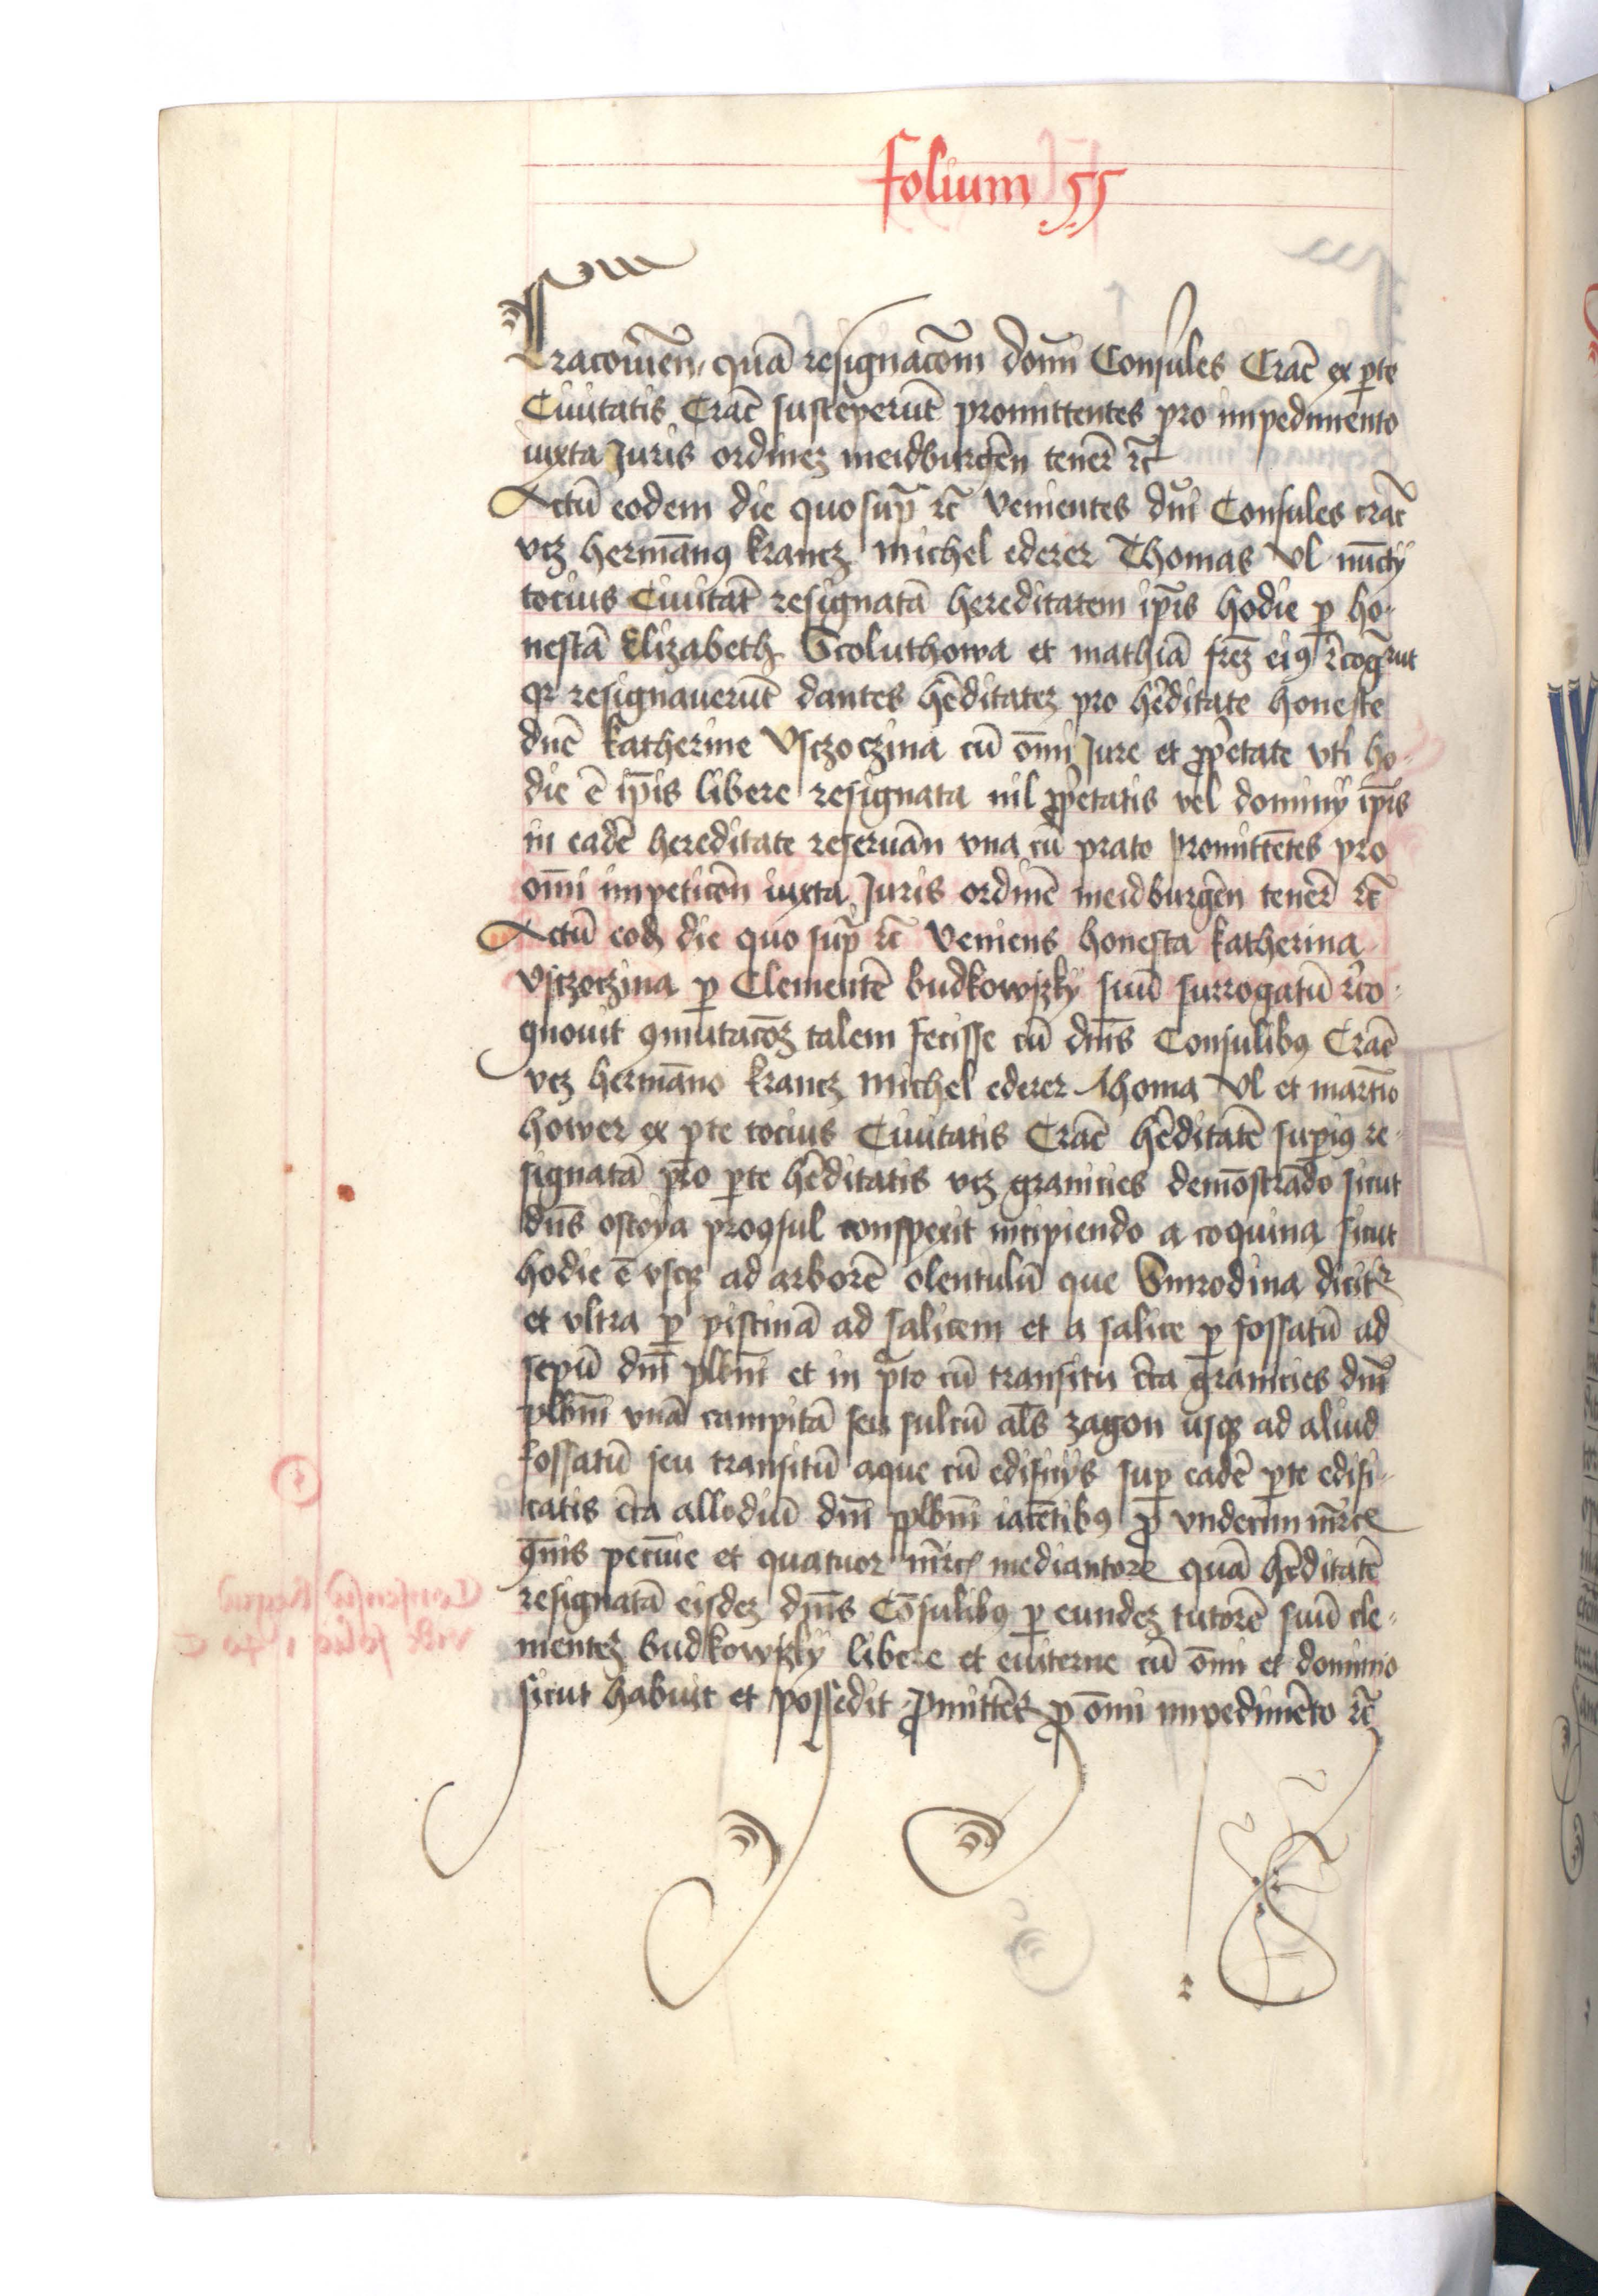 folium 55
Cracouieñ, quā resignacōm dom̄ Consules Crac̄ ex ꝑte
Ciuitatis Crac̄ susceperūt promittentes pro impedimento
iuxta Juris ordineꝫ meidburgeñ teneꝛ̄ ꝛc̄
Actū eodem die quo supͣ ꝛc̄ venientes dn̄i Consules crac̄
vcꝫ hermānꝰ krancꝫ michel ederer Thomas Vl nūcij
tocius Ciuitat̄ resignatā hereditatem ip̄is hodie ꝑ ho-
nestā Elizabeth Scoluthowa et mathiā fr̄eꝫ eiꝰ r̄cogͬut
qꝛ resignauerūt dantes hēditateꝫ pro hēditate honeste
dnē katherine Vsczoczina cū om̄i Jure et ꝓp̄etate vti ho-
die ē ip̄is libere resignata nil ꝓp̄etatis vel dominij ip̄is
in eadē hereditate reseruān vna cū prato promittētes pro
om̄i impeticōn iuxta Juris ordinē meidburgeñ teneꝛ̄ ꝛc̄
Actū eodꝫ die quo supͣ ꝛc̄ veniens honesta katherina
Vsczoczina ꝑ Clementē budkowsky suū surrogatū r̄co-
gnouit ꝯmutacōꝫ talem fecisse cū dn̄is Consulibꝰ Crac̄
vcꝫ hermāno krancꝫ michel ederer Thoma Vl et martīo
hower ex ꝑte tocius Ciuitatis Crac̄ hēditatē supiꝰ re-
signatā pro ꝑte hēditatis vcꝫ granicies demōstrādo sicut
dn̄s ostoya proꝯsul conspexit incipiendo a coquina sicut
hodie ē vsqꝫ ad arborē olentulū que Smrodina dicitͬ
et vltra ꝑ piscinā ad salicem et a salice ꝑ fossatū ad
sepū dn̄i plbn̄i et in pͣto cū transitu c̄ta granicies dn̄i
plbn̄i vnā campitā seu sulcū al̄s zagon usqꝫ ad aliud
fossatū seu transitū aque cū edificijs suꝑ eadē ꝑte edifi-
catis c̄ta allodiū dn̄i plbn̄i iacētibꝰ ꝓ vndecim m̄rce
ꝯm̄is pecūie et quatuor m̄rcꝭ mediantore quā hēditatē
resignatā eisdeꝫ dn̄is Cōsulibꝰ ꝑ eundeꝫ tutorē suū cle-
menteꝫ budkowsky libere et euiterne cū ōmi et dominio
sicut habuit et possedit ꝓmittēs ꝓ ōmi impedimēto ꝛc̄